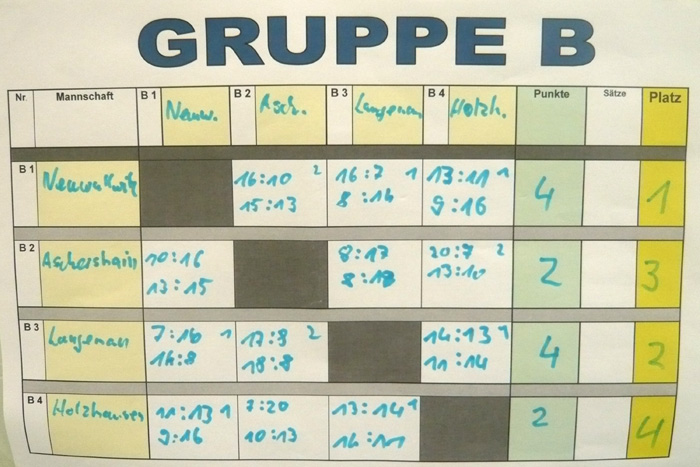 GRUPPE B
Nr. Mannschaft B 1 Neuw. B 2 Asch. B 3 Langenau B 4 Holzh. Punkte Sätze Platz
B 1 16:10 2 16:7 1 13:11 1
15:13 8:16 9:16 4 1
B 2 Aschershain 10:16 8:17 20:7 2
13:15 8:18 13:10 2 3
B 3 Langenau 7:16 1 17:8 2 14:13 1
16:8 18:8 11:14 4 2
B 4 Holzhausen 11:13 1 7:20 13:14 1
9:16 10:13 14:11 2 4